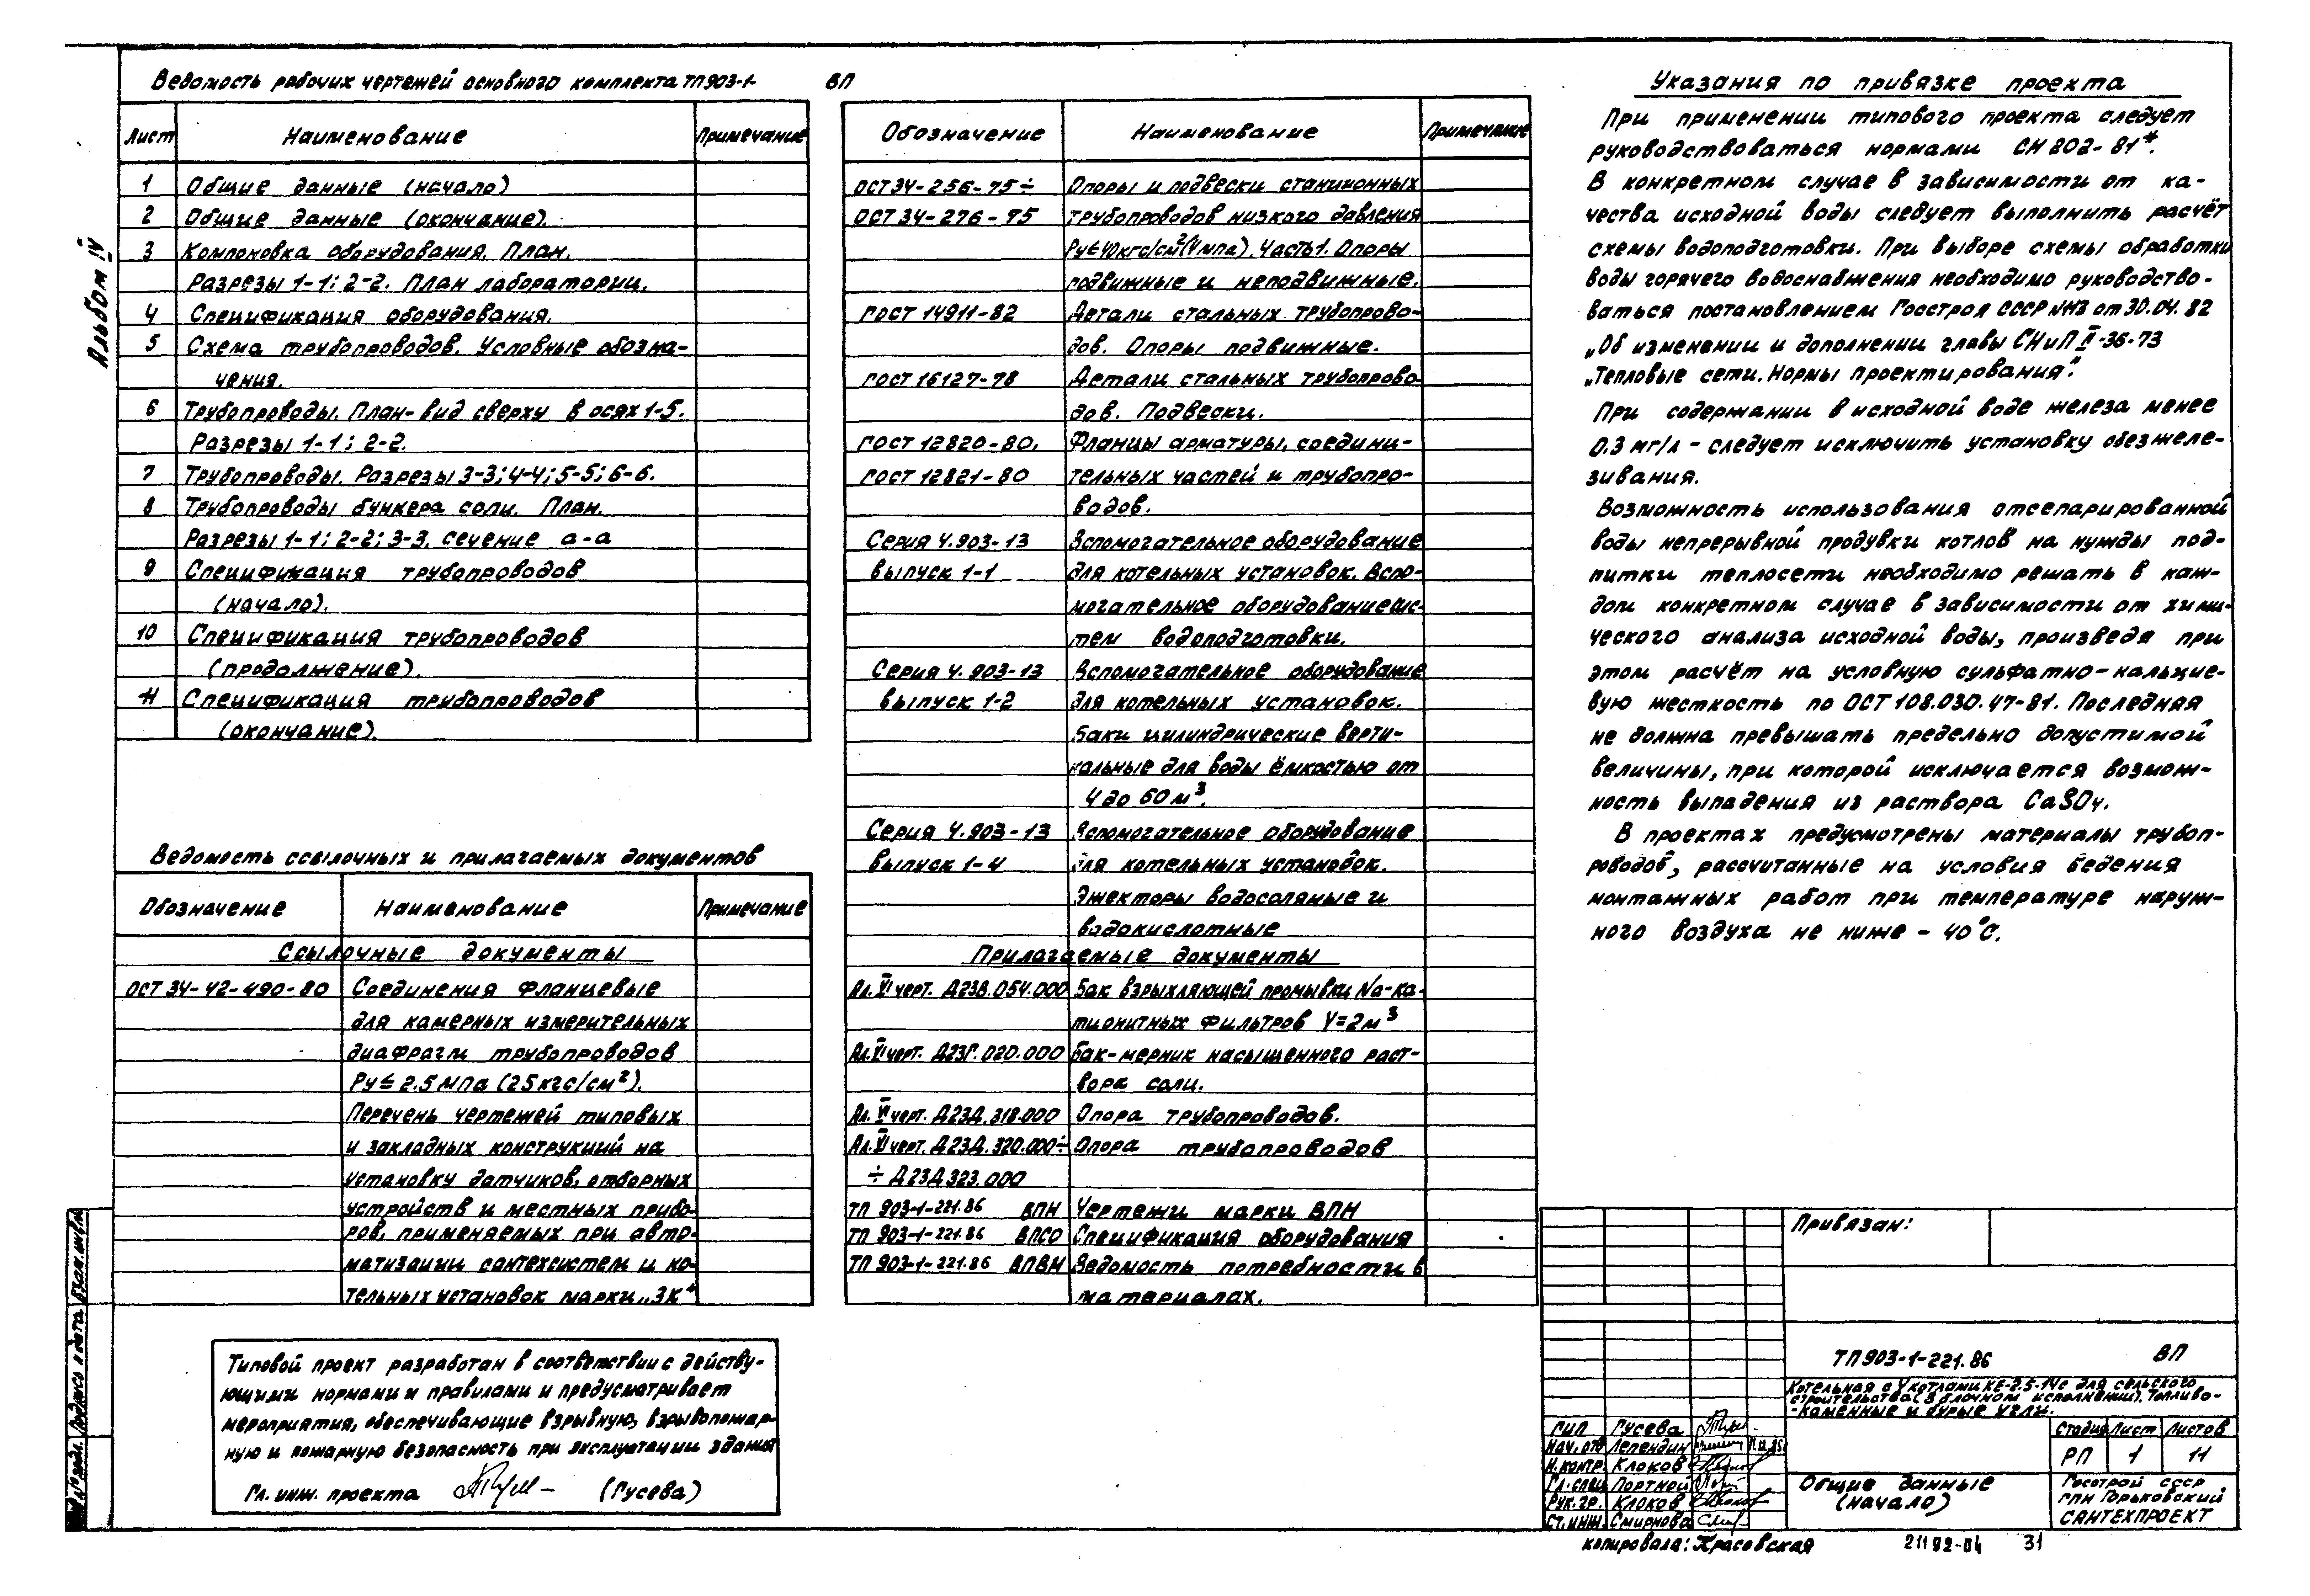 Альбом IV
Ведомость рабочих чертежей основного комплекта ТП903-1- ВП
Лист Наименование Примечание
1 Общие данные (начало)
2 Общие данные (окончание).
3 Компоновка оборудования. План.
Разрезы 1-1; 2-2. План лаборатории.
4 Спецификация оборудования.
5 Схема трубопроводов. Условные обозна-
чения.
6 Трубопроводы. План-вид сверху в осях 1-5.
Разрезы 1-1; 2-2.
7 Трубопроводы. Разрезы 3-3; 4-4; 5-5; 6-6.
8 Трубопроводы бункера соли. План.
Разрезы 1-1; 2-2; 3-3. сечение а-а
9 Спецификация трубопроводов
(начало).
10 Спецификация трубопроводов
(продолжение).
11 Спецификация трубопроводов
(окончание).
Ведомость ссылочных и прилагаемых документов
Обозначение Наименование Примечание
Ссылочные документы
ОСТ 34-42-490-80 Соединения фланцевые
для камерных измерительных
диафрагм трубопроводов
Ру≤2.5мпа (25кгс/см²).
Перечень чертежей типовых
и закладных конструкций на
установку датчиков, отборных
устройств и местных прибо-
ров, применяемых при авто-
матизации сантехсистем и ко-
тельных установок марки „ЗК"
Типовой проект разработан в соответствии с действу-
ющими нормами и правилами и предусматривает
мероприятия, обеспечивающие взрывную, взрывопожар-
ную и пожарную безопасность при эксплуатации здания
Гл. инж. проекта (Гусева)
Обозначение Наименование Примечание
ОСТ 34-256-75÷ Опоры и подвески станционных
ОСТ 34-276-75 трубопроводов низкого давления
Ру≤40кгс/см²(4мпа). Часть 1. Опоры
подвижные и неподвижные.
ГОСТ 14911-82 Детали стальных трубопрово-
дов. Опоры подвижные.
ГОСТ 16127-78 Детали стальных трубопрово-
дов. Подвески.
ГОСТ 12820-80, Фланцы арматуры, соедини-
ГОСТ 12821-80 тельных частей и трубопро-
водов.
Серия 4.903-13 Вспомогательное оборудование
выпуск 1-1 для котельных установок. Вспо-
могательное оборудование сис-
тем водоподготовки.
Серия 4.903-13 Вспомогательное оборудование
выпуск 1-2 для котельных установок.
Баки цилиндрические верти-
кальные для воды ёмкостью от
4 до 60м³.
Серия 4.903-13 Вспомогательное оборудование
выпуск 1-4 для котельных установок.
Эжекторы водосоляные и
водокислотные
Прилагаемые документы
Ал. VI черт. Д23В.054.000 Бак взрыхляющей промывки Na-ка-
тионитных фильтров V=2м³
Ал. VI черт. Д23Г.020.000 Бак-мерник насыщенного раст-
вора соли.
Ал. VI черт. Д23Д.318.000 Опора трубопроводов.
Ал. VI черт. Д23Д.320.000÷ Опора трубопроводов
÷Д23Д323.000
ТП 903-1-221.86 ВПН Чертежи марки ВПН
ТП 903-1-221.86 ВПСО Спецификация оборудования
ТП 903-1-221.86 ВПВМ Ведомость потребности в
материалах.
Указания по привязке проекта
При применении типового проекта следует
руководствоваться нормами СН 202-81*.
В конкретном случае в зависимости от ка-
чества исходной воды следует выполнить расчёт
схемы водоподготовки. При выборе схемы обработки
воды горячего водоснабжения необходимо руководство-
ваться постановлением Госстроя СССР №113 от 30.04.82
„Об изменении и дополнении главы СНиП II-36-73
„Тепловые сети. Нормы проектирования".
При содержании в исходной воде железа менее
0.3 мг/л - следует исключить установку обезжеле-
зивания.
Возможность использования отсепарированной
воды непрерывной продувки котлов на нужды под-
питки теплосети необходимо решать в каж-
дом конкретном случае в зависимости от хими-
ческого анализа исходной воды, произведя при
этом расчёт на условную сульфатно-кальцие-
вую жесткость по ОСТ 108.030.47-81. Последняя
не должна превышать предельно допустимой
величины, при которой исключается возмож-
ность выпадения из раствора CaSO₄.
В проектах предусмотрены материалы трубоп-
роводов, рассчитанные на условия ведения
монтажных работ при температуре наруж-
ного воздуха не ниже -40°С.
Привязан:
ТП903-1-221.86 ВП
Котельная с 4 котлами КЕ-2.5-14с для сельского
строительства (в блочном исполнении). Топливо-
-каменные и бурые угли.
ГИП Гусева
Нач. отд Лепендин
Н. контр. Клоков
Гл. спец Портной
Рук. гр. Клоков
Ст. инж. Смирнова
Стадия Лист Листов
РП 1 11
Общие данные
(начало)
Госстрой СССР
ГПИ Горьковский
САНТЕХПРОЕКТ
Инв.№ подл. Подпись и дата Взам. инв.№
копировала: Красовская 21192-04 31